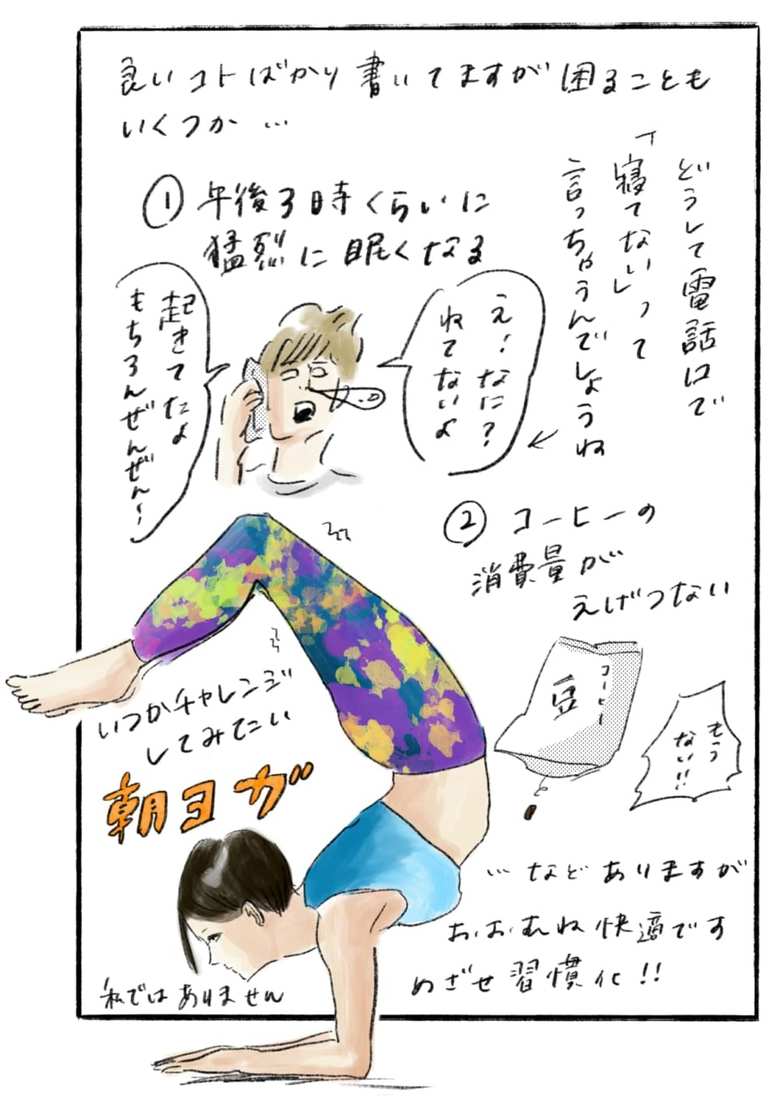 良いコトばかり書いてますが困ることも
いくつか…
①午後3時くらいに
猛烈に眠くなる
どうして電話口で
「寝てない」って
言っちゃうんでしょうね
え！なに？
ねてないよ
起きてたよ
もちろんぜんぜん～
②コーヒーの
消費量が
えげつない
コーヒー
豆
もう
ない!!
いつかチャレンジ
してみてたい
朝ヨガ
…などありますが
おおむね快適です
めざせ習慣化!!
私ではありません